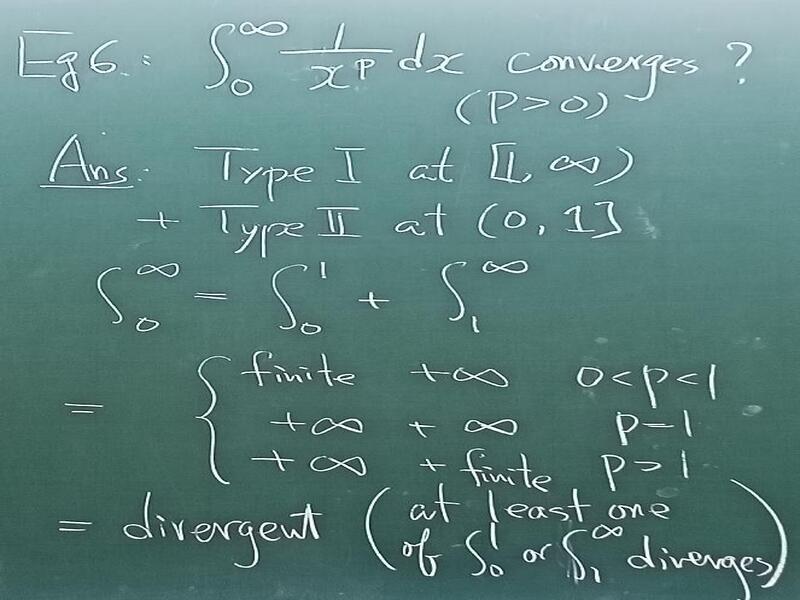 Eg 6.: ∫₀^∞ 1/x^p dx converges ?
(P>0)
Ans: Type I at [1, ∞)
+ Type II at (0, 1]
∫₀^∞ = ∫₀^1 + ∫₁^∞
= { finite +∞ 0<p<1
+∞ + ∞ p=1
+∞ + finite p>1
= divergent (at least one
of ∫₀^1 or ∫₁^∞ diverges)